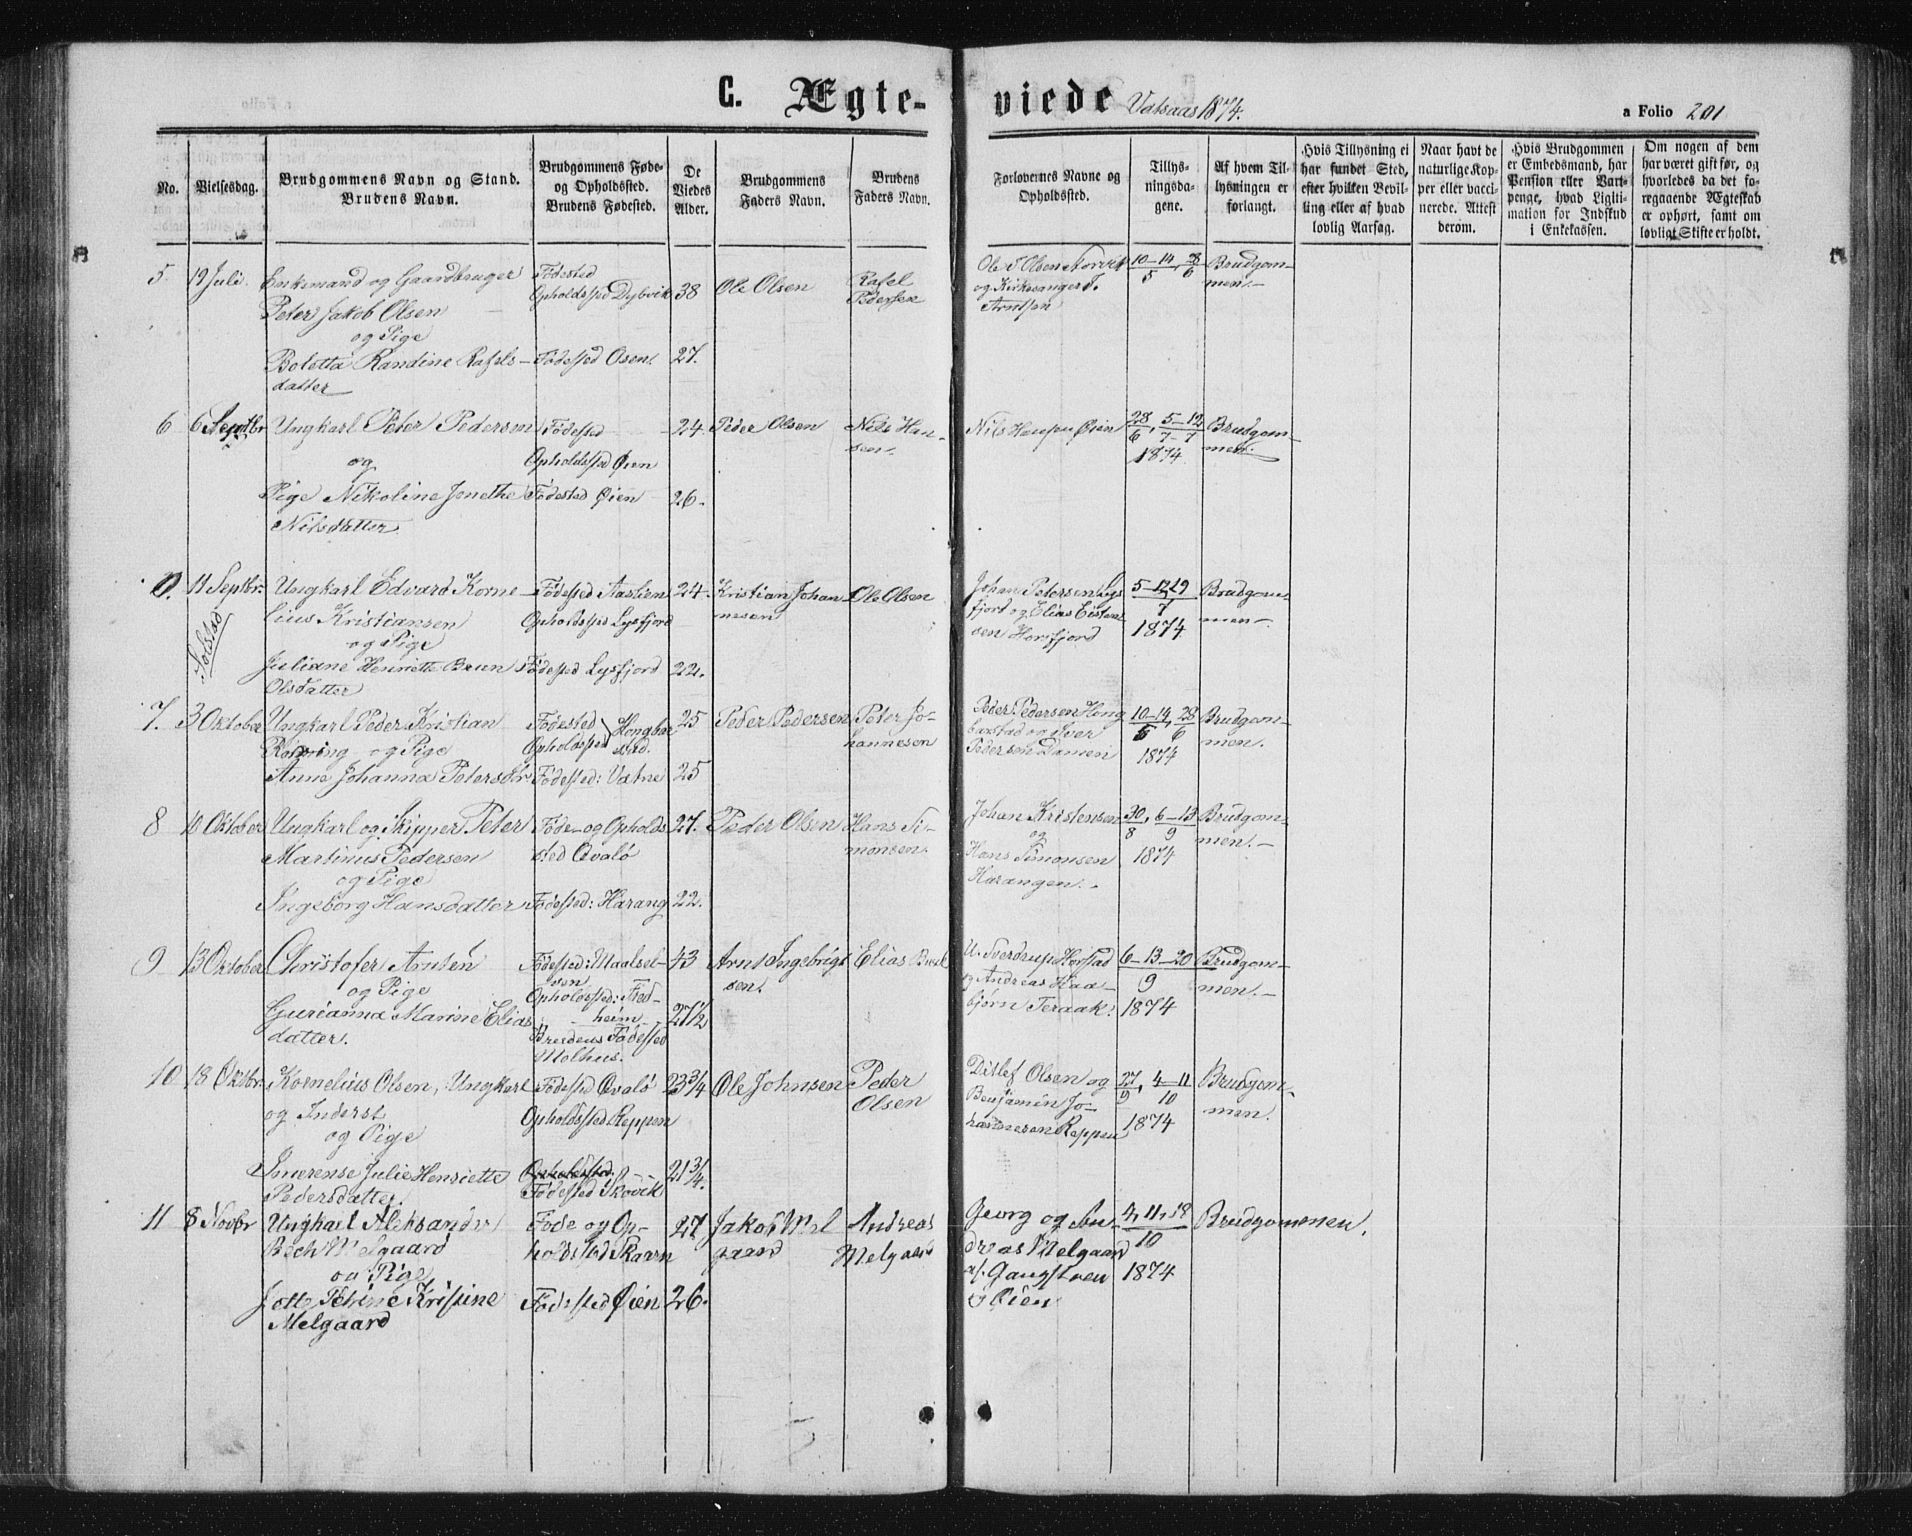 C. Ægte-viede Vatsaas 1874.
a Folio 201
No.
Vielsesdag.
Brudgommens Navn og Stand.
Brudens Navn.
Brudgommens Føde-
og Opholdssted.
Brudens Fødested.
De
Viedes
Alder.
Brudgommens
Faders Navn.
Brudens
Faders Navn.
Forlovernes Navne og
Opholdssted.
Tillys-
ningsda-
gene.
Af hvem Til-
lysningen er
forlangt.
Hvis Tillysning ei
har fundet Sted,
efter hvilken Bevil-
ling eller af hvad
lovlig Aarsag.
Naar havt de
naturlige Kop-
per eller vacci-
nerede. Attest
derom.
Hvis Brudgommen
er Embedsmand, har
Pension eller Vart-
penge, hvad Ligiti-
mation for Indskud
i Enkekassen.
Om nogen af dem
har været gift før, og
hvorledes da det fo-
regaaende Ægteskab
er ophørt, samt om
lovligt Skifte er holdt.
5
19 Juli
Enkemand og Gaardbruger
Peter Jakob Olsen
og Pige
Boletta Randine Rafels-
datter
Födested
Opholdssted Dybvik
Födested Osen.
38
27.
Ole Olsen
Rafel
Pedersen
Ole T Olsen
og Kirkesanger J.
Arntsen
10-14, 28
5 6
Brudgom-
men.-
6
6 Septbr
Ungkarl Peter Pedersen
og
Pige Nikoline Jonethe
Nilsdatter
Födested
Opholdssted Øien
Födested Øien
24.
26.
Peder Olsen
Nils Han-
sen.
Nils Hansen Øien
28, 5-12
6 7-7
1874
Brudgom-
men.
0.
11 Septbr.
Solstad
Ungkarl Edvard Korne-
lius Kristiansen
og Pige
Juliane Henriette Brun
Olsdatter
Födested Aaslien
Opholdssted Lysfjord
Födested Lysfjord
24.
22.
Kristian Johan
nesen
Ole Olsen
Johan Petersen Lys
fjord og Elias Eisten
sen Horsfjord
5-12, 19
7
1874
Brudgom-
men-
7.
3 Oktober
Ungkarl Peder Kristian
og Pige
Anne Johanna Petersdtr
Födested
Opholdssted
Hongbar
stad.
Födested: Vatne
25
25
Peder Pedersen
Peter Jo-
hannesen
Peder Pedersen Hong
barstad og Iver
Pedersen Damen
10-14, 28
5 6
1874
Brudgom-
men.
8
10 Oktober
Ungkarl og Skipper Peter
Martinus Pedersen
og Pige
Ingeborg Hansdatter
Föde- og Opholds
sted Qvalö
Födested: Harang
27.
22.
Peder Olsen
Hans Si-
monsen.
Johan Kristensen
og
Hans Simonsen
Harangen.-
30, 6-13
8 9
1874
Brudgom-
men.-
9
13 Oktober
Christofer Arnten
og Pige
Gurianna Marine Elias
datter.
Födested: Maalsel-
ven
Opholdssted: Fred-
heim
Brudens Födested
Molhus.
43
27 1/2
Arnt Ingebrigt
sen.
Elias
U. Sverdrup Horstad
og Andreas Haa-
björn Teraak.
6-13-20
9
1874
Brudgom-
men.-
10
18 Oktbr.
Kornelius Olsen, Ungkarl
og Inderst
og Pige
Imerense Julie Henriette
Pedersdatter.
Födested Qvalö
Opholdssted Reppen
Opholdssted
Födested Skovik
23 3/4
21 3/4.
Ole Johnsen
Peder
Olsen
Ditlef Olsen og
Benjamin Jo-
hannesen Reppen
27, 4-11
9 10
1874
Brudgom-
men.
11
8 Novbr
Ungkarl Aleksander
Bech Melgaard
og Pige
Petrine Kristine
Melgaard
Föde og Op-
holdssted Skavn
Födested Øien
27
26.
Jakob Mel
gaard
Andreas
Melgaard
Georg og An-
dreas Melgaard
af. Gangstøen
& Øien
4, 11, 18
10
1874
Brudgommen.